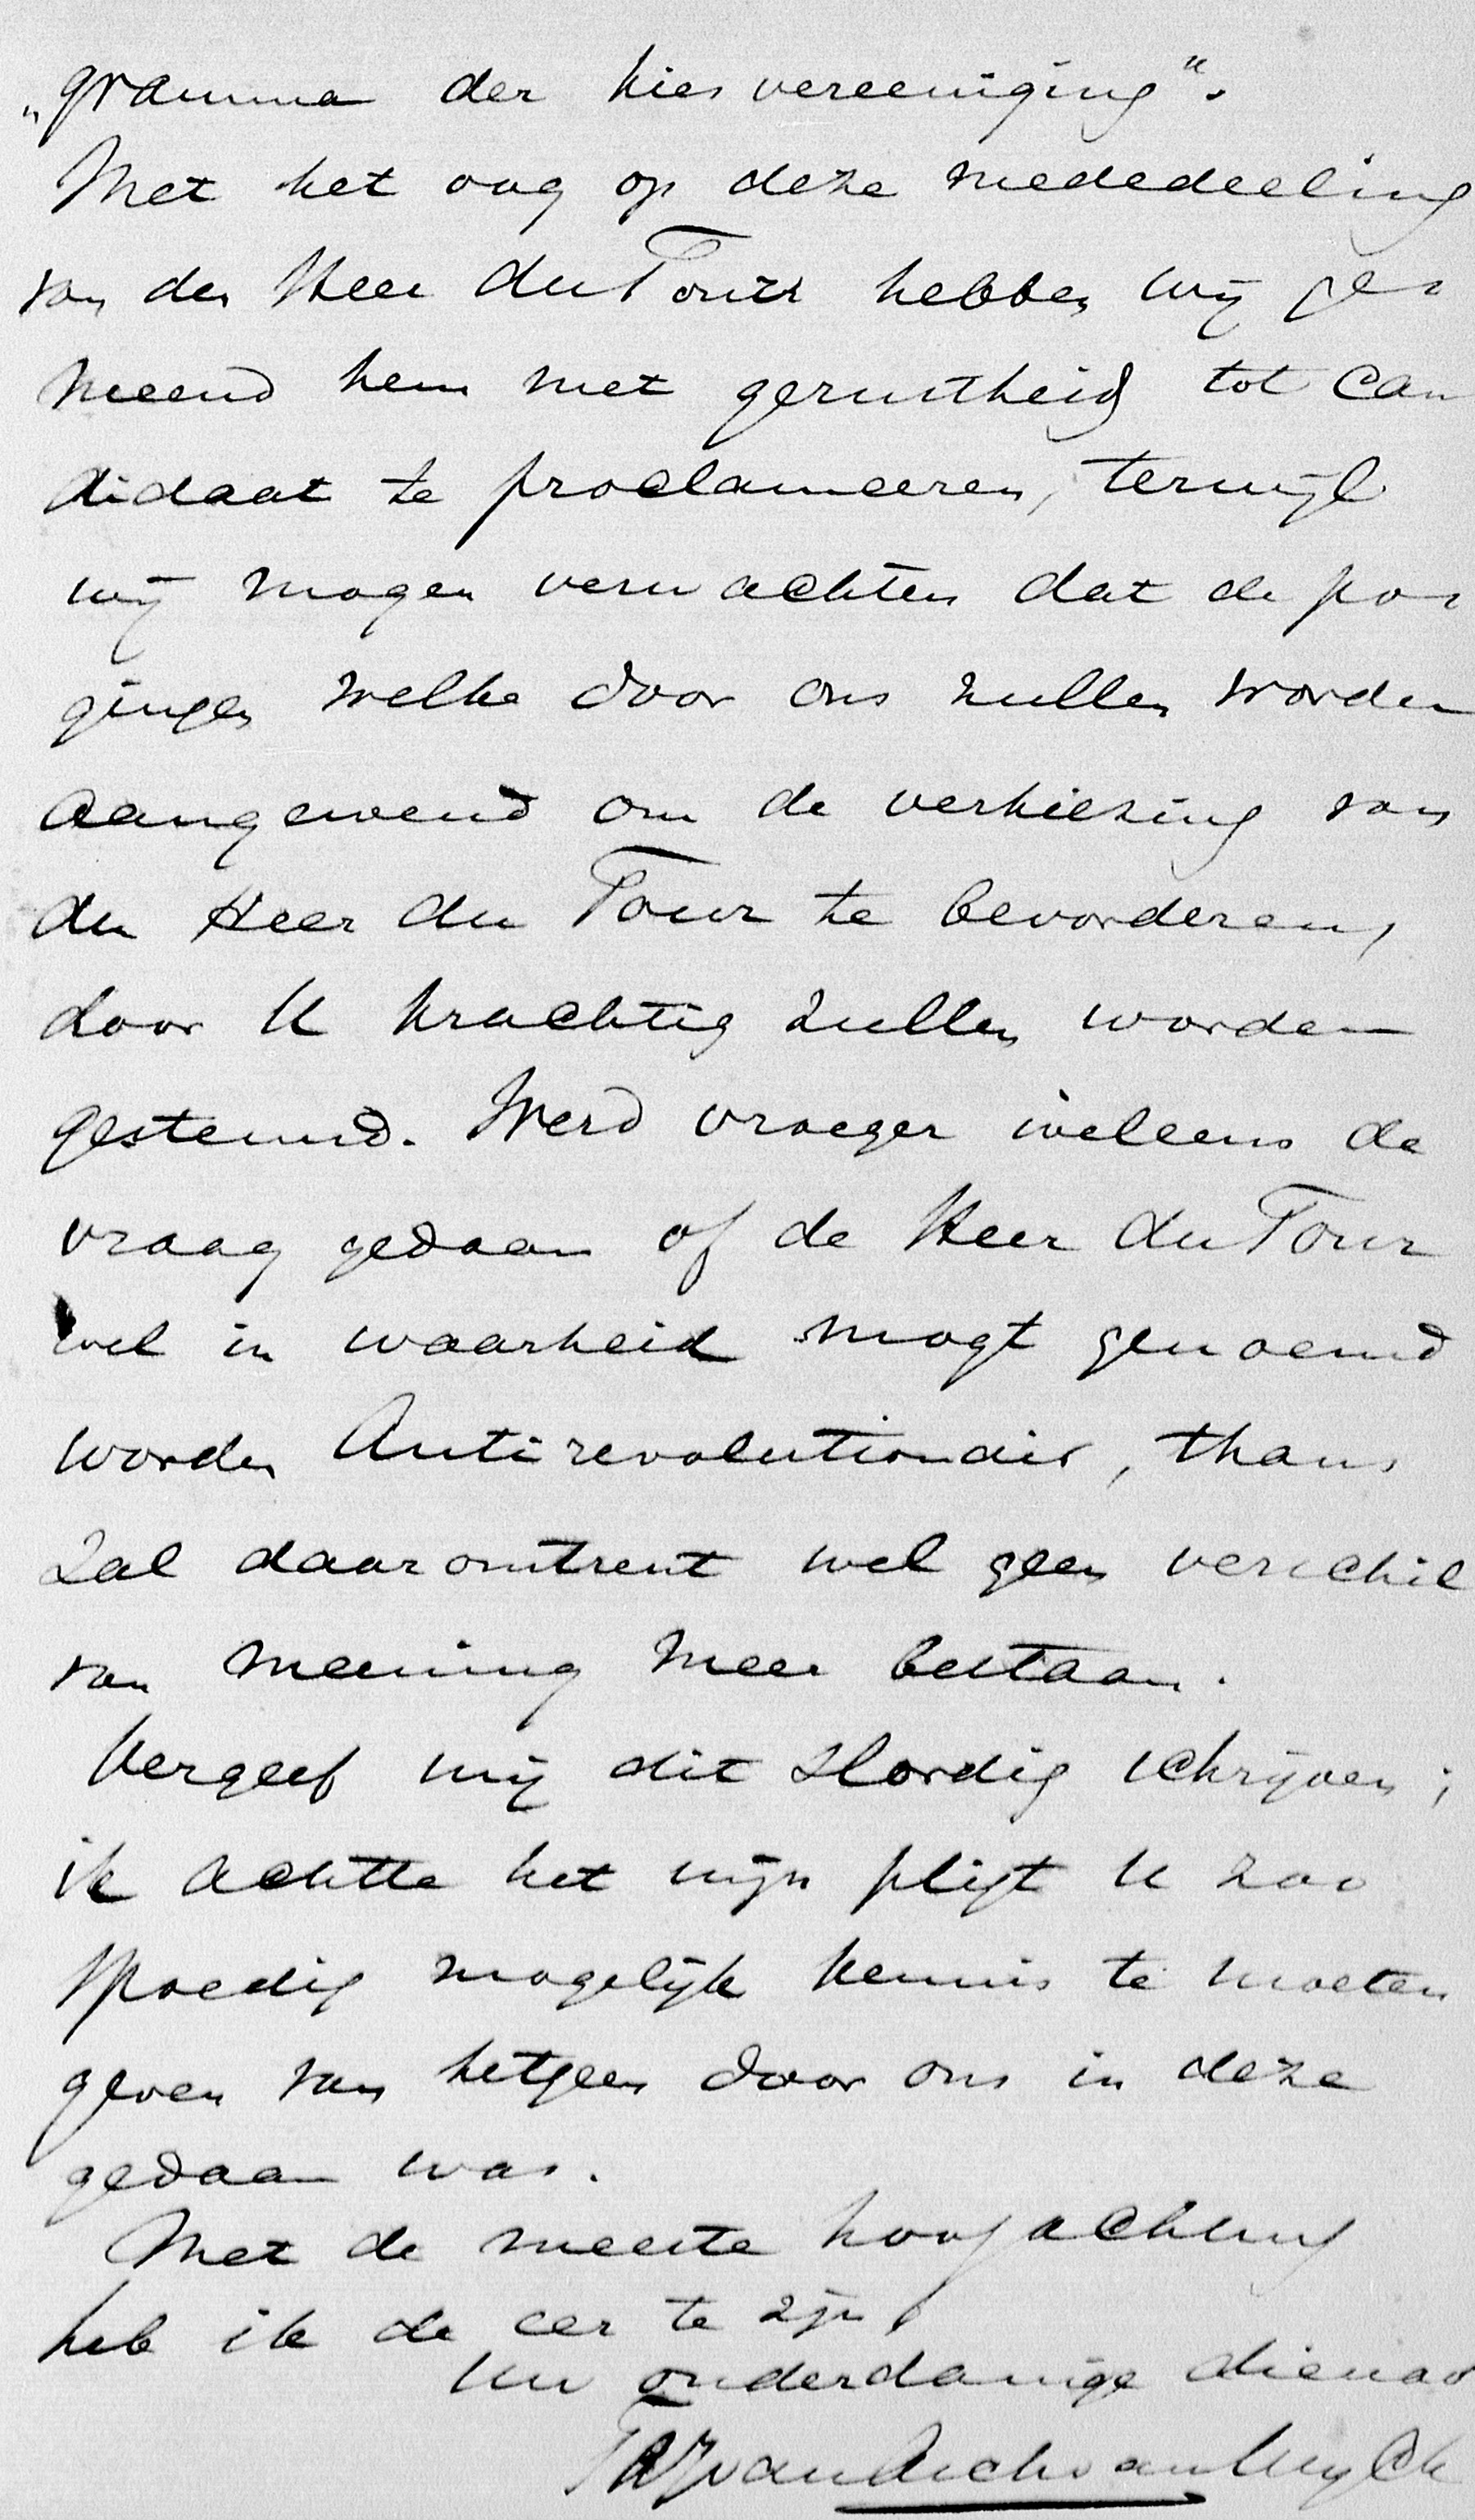 „gramma der kiesvereeniging“.
Met het oog op deze mededeeling
van den Heer du Tour hebben wij ge-
meend hem met gerustheid tot can
didaat te proclameeren, terwijl
wij mogen verwachten dat de po-
gingen welke door ons zullen worden
aangewend om de verkiezing van
den Heer du Tour te bevorderen,
door U krachtig zullen worden
gesteund. Werd vroeger weleens de
vraag gedaan of de Heer du Tour
wel in waarheid mogt genoemd
worden Antirevolutionair, thans
zal daaromtrent wel geen verschil
van meening meer bestaan.
Vergeef mij dit slordig schrijven;
ik achtte het mijn pligt U zoo
spoedig mogelijk kennis te moeten
geven van hetgeen door ons in deze
gedaan was.
Met de meeste hoogachting
heb ik de eer te zijn
Uw onderdanige dienaar
van Asch van Wyck